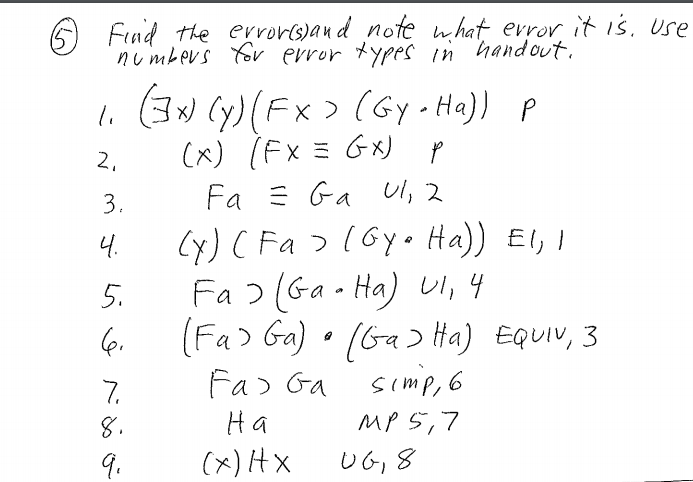 ⑤ Find the error(s) and note what error it is. Use
numbers for error types in handout.
1. (∃x) (y) (Fx ⊃ (Gy • Ha)) P
2. (x) (Fx ≡ Gx) P
3. Fa ≡ Ga UI, 2
4. (y) (Fa ⊃ (Gy • Ha)) EI, 1
5. Fa ⊃ (Ga • Ha) UI, 4
6. (Fa ⊃ Ga) • (Ga ⊃ Ha) EQUIV, 3
7. Fa ⊃ Ga SIMP, 6
8. Ha MP 5, 7
9. (x) Hx UG, 8